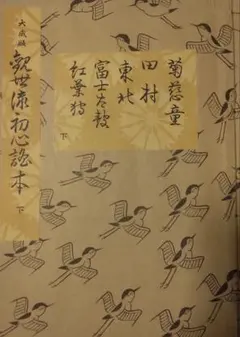 菊慈童
田村
東北
富士太鼓
紅葉狩
下
大成版 観世流初心謡本 下